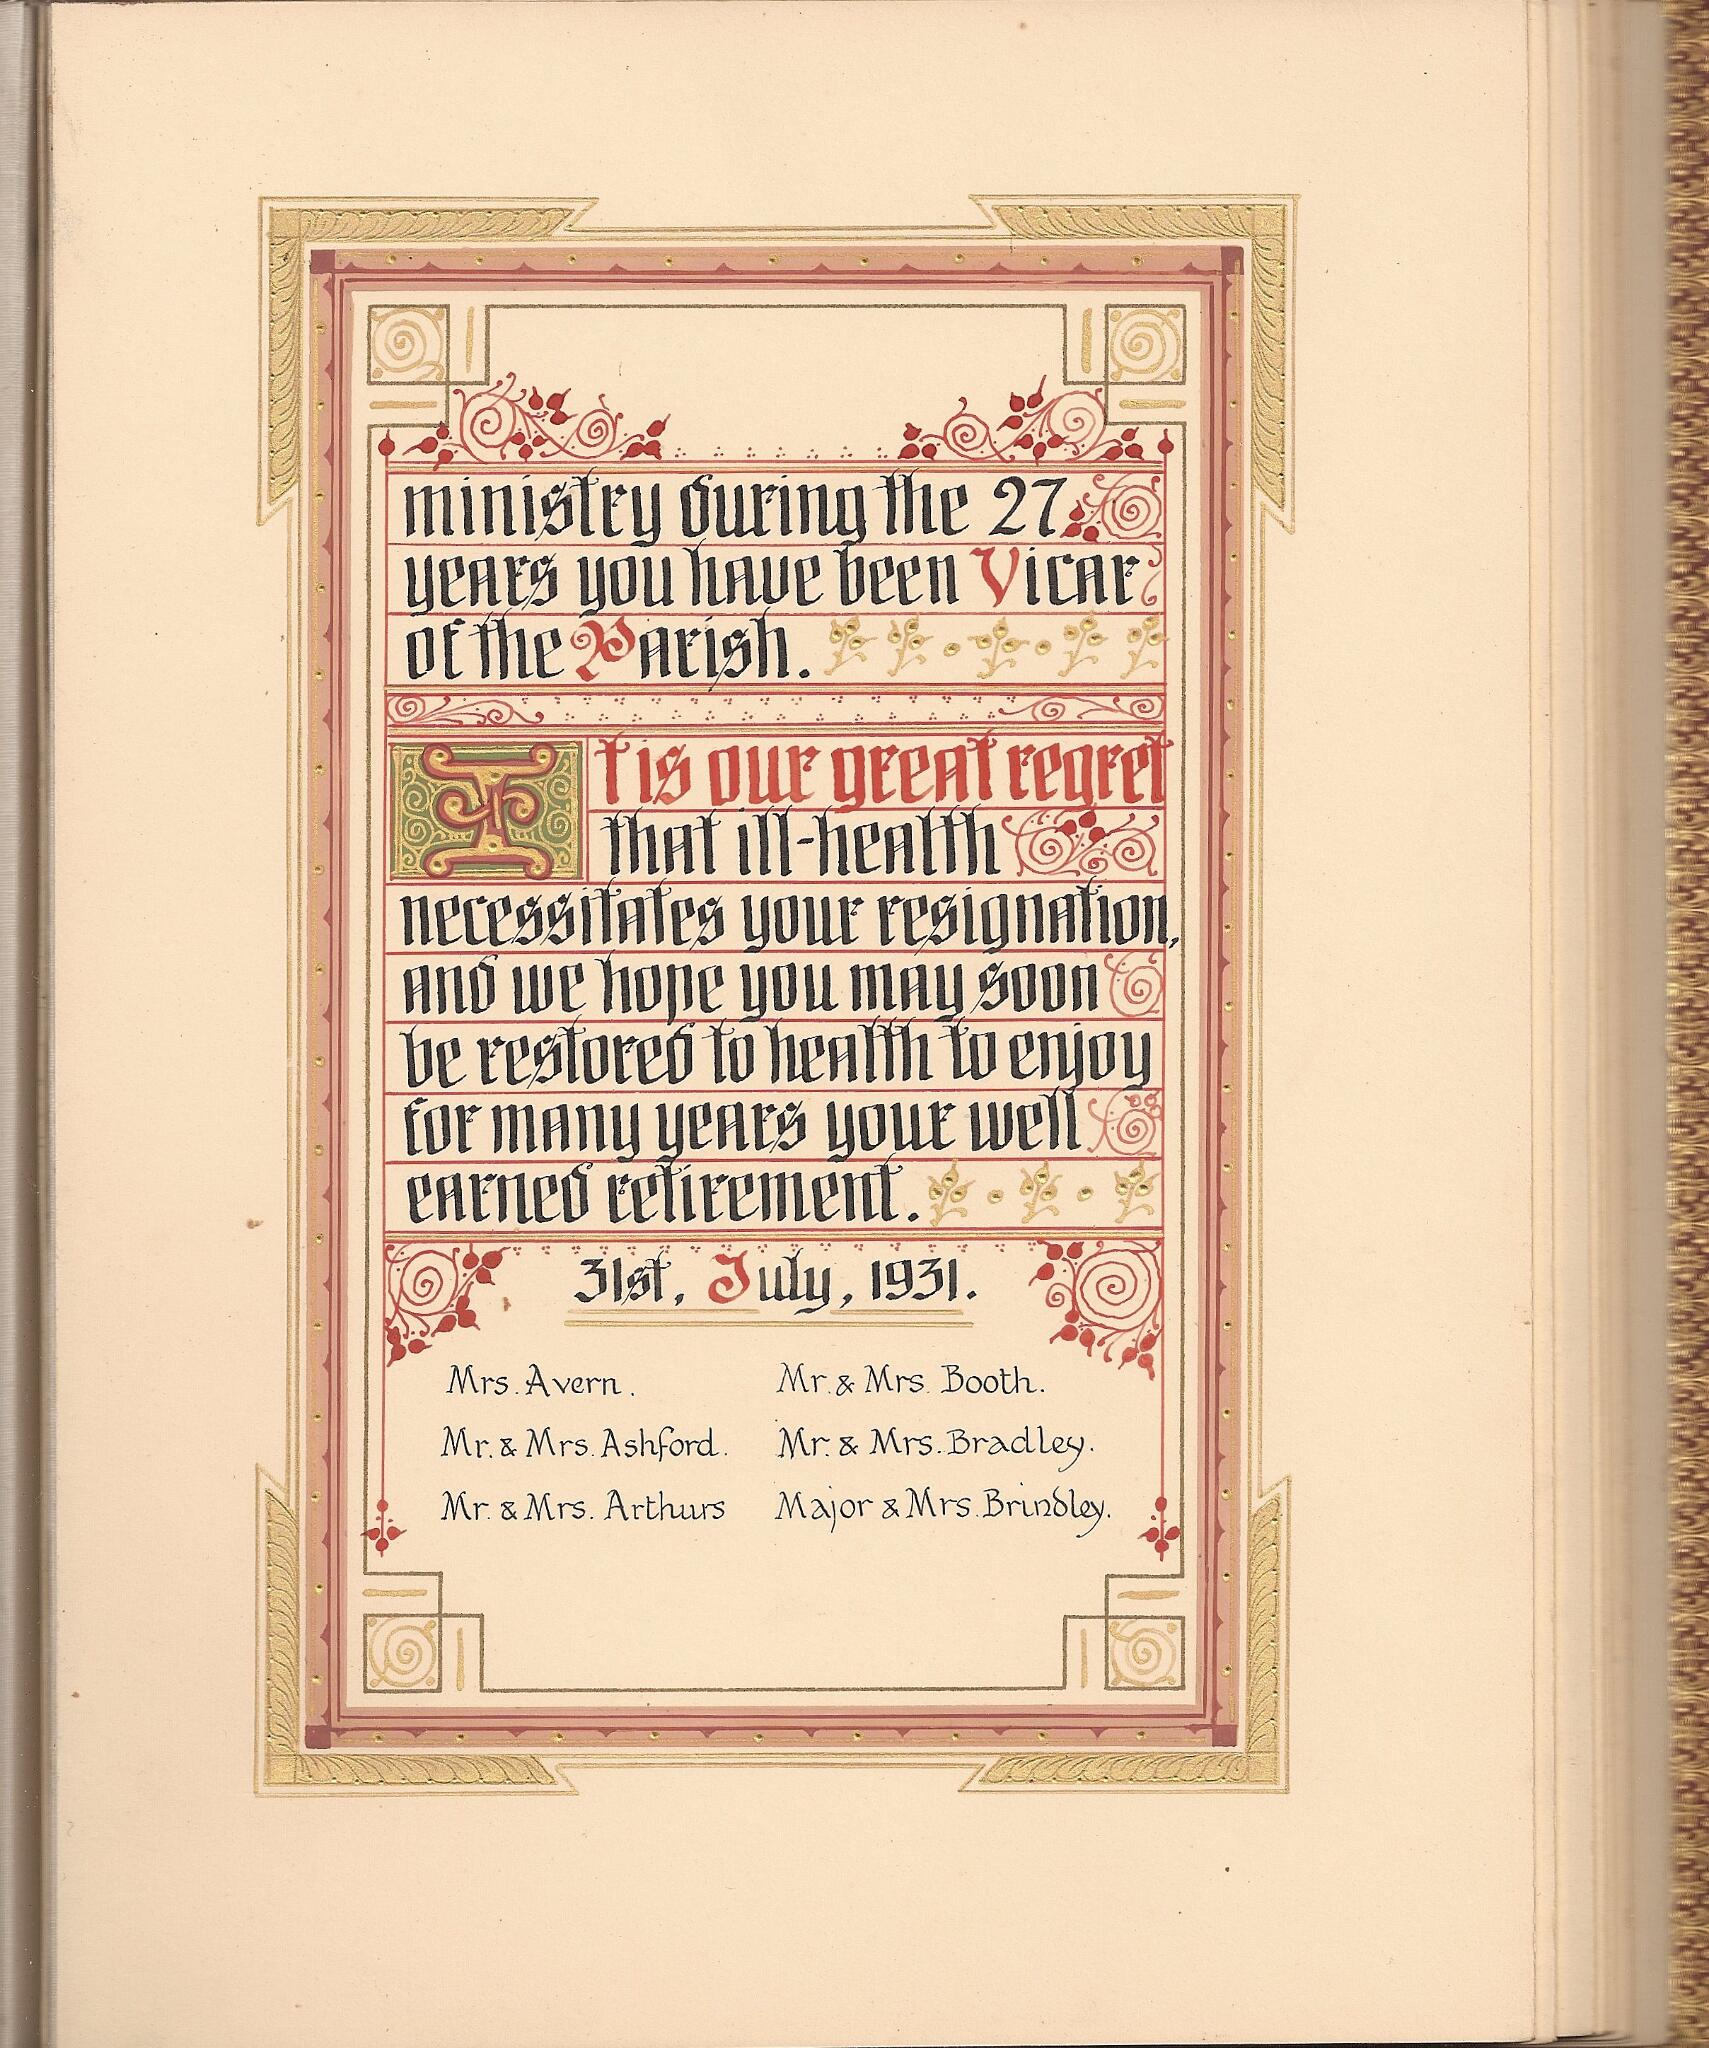 ministry during the 27
years you have been Vicar
of the Parish.
It is our great regret
that ill-health
necessitates your resignation,
and we hope you may soon
be restored to health to enjoy
for many years your well
earned retirement.
31st, July, 1931.
Mrs. Avern. Mr. & Mrs. Booth.
Mr. & Mrs. Ashford. Mr. & Mrs. Bradley.
Mr. & Mrs. Arthurs Major & Mrs. Brindley.